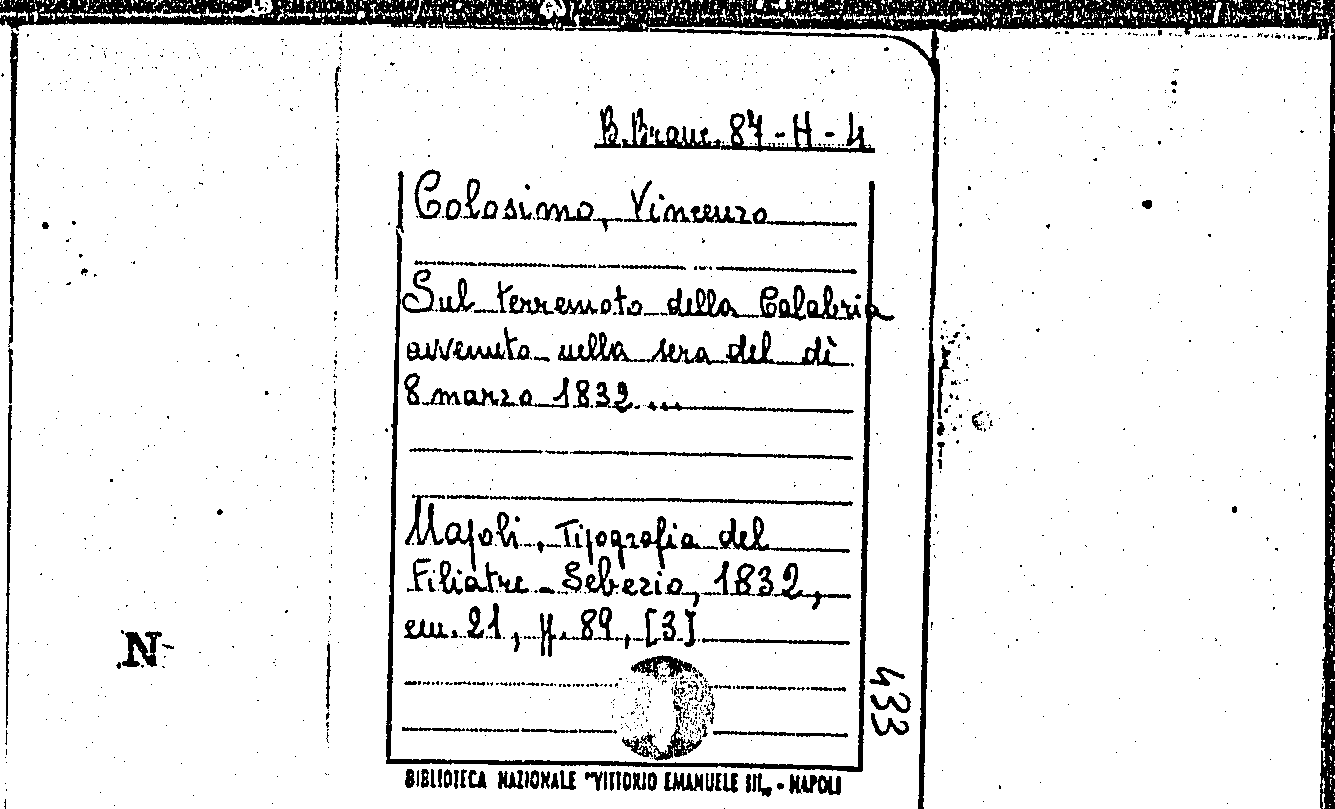 B. Branc. 87-H-4
Colosimo, Vincenzo
Sul terremoto della Calabria
avvenuto nella sera del dì
8 marzo 1832...
Napoli, Tipografia del
Filiatre-Sebezio, 1832,
cm. 21, pp. 89, [3]
433
N
BIBLIOTECA NAZIONALE "VITTORIO EMANUELE III„ - NAPOLI